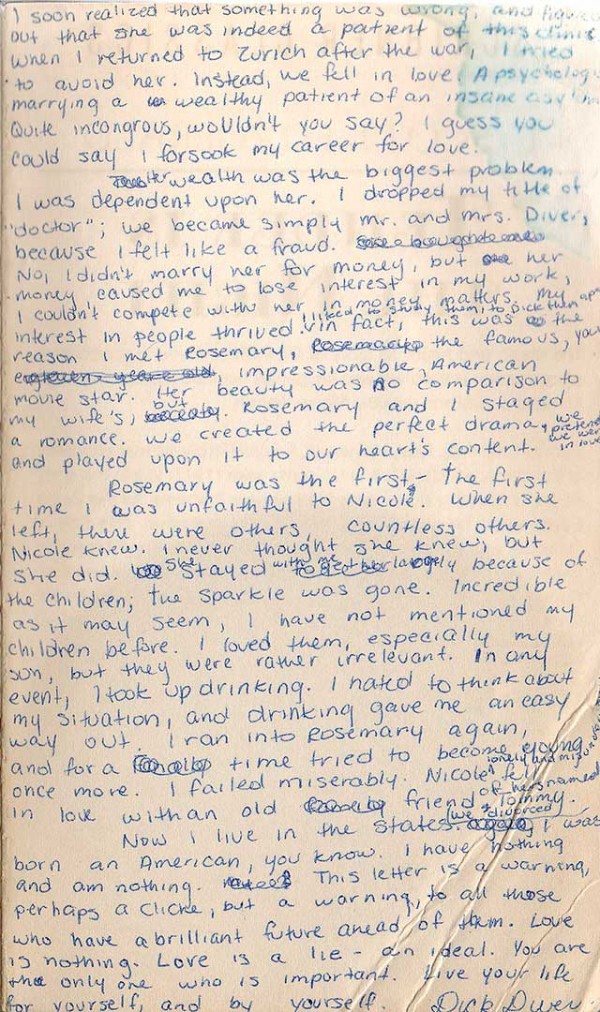 I soon realized that something was wrong, and figured
out that she was indeed a patient of this clinic.
When I returned to Zurich after the war, I tried
to avoid her. Instead, we fell in love. A psychologist
marrying a wealthy patient of an insane asylum.
Quite incongrous, wouldn't you say? I guess you
could say I forsook my career for love.
Her wealth was the biggest problem.
I was dependent upon her. I dropped my title of
"doctor"; we became simply Mr. and Mrs. Diver,
because I felt like a fraud.
No, I didn't marry her for money, but her
money caused me to lose interest in my work,
I couldn't compete with her in money matters. My
interest in people thrived. I liked to study them, to pick them apart
In fact, this was the
reason I met Rosemary, the famous, young
impressionable, American
movie star. Her beauty was no comparison to
my wife's, but Rosemary and I staged
a romance. We created the perfect drama, we pretended we were in love
and played upon it to our heart's content.
Rosemary was the first - The first
time I was unfaithful to Nicole. When she
left, there were others, countless others.
Nicole knew. I never thought she knew, but
she did. She stayed with me largely because of
the children; the sparkle was gone. Incredible
as it may seem, I have not mentioned my
children before. I loved them, especially my
son, but they were rather irrelevant. In any
event, I took up drinking. I hated to think about
my situation, and drinking gave me an easy
way out. I ran into Rosemary again,
and for a time tried to become young
once more. I failed miserably. Nicole, lonely and fell
in love with an old friend of hers named Tommy.
we divorced
Now I live in the States. I was
born an American, you know. I have nothing
and am nothing. This letter is a warning,
perhaps a cliche, but a warning, to all those
who have a brilliant future ahead of them. Love
is nothing. Love is a lie - an ideal. You are
the only one who is important. Live your life
for yourself, and by yourself. Dick Diver